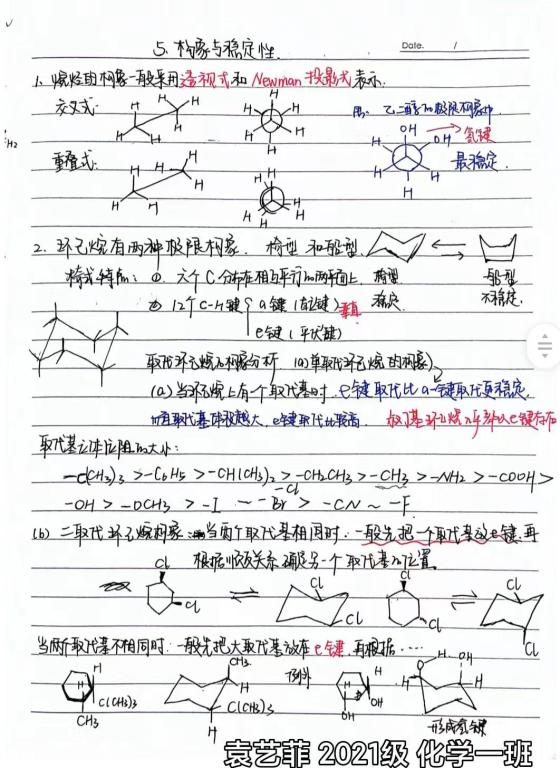 5. 构象与稳定性.
Date. /
1. 烷烃的构象一般采用透视式和 Newman 投影式表示.
交叉式:
H H H H H H
H H H H H H
如: 乙二醇的极限构象中
OH OH 氢键
H H H H
最稳定.
H2
重叠式:
H H H H H H
H H H H
2. 环己烷有两种极限构象. 椅型 和船型.
椅式特点: ①. 六个C分布在相互平行的两平面上.
椅型 稳定.
船型 不稳定.
② 12个C-H键 a键(直立键) 垂直
e键(平伏键)
取代环己烷的构象分析. (a)单取代环己烷的构象)
(a) 当环己烷上有一个取代基时, e键取代比a-键取代更稳定.
而且取代基体积越大, e键取代比例越高.
取代基立体位阻的大小:
-C(CH3)3 > -C6H5 > -CH(CH3)2 > -CH2CH3 > -CH3 > -NH2 > -COOH >
-Cl
-OH > -OCH3 > -I ~ -Br > -CN ~ -F.
(b) 二取代环己烷构象: 当两个取代基相同时. 一般先把一个取代基放e键,再
根据顺反关系确定另一个取代基的位置.
Cl Cl Cl Cl Cl Cl Cl Cl
当两个取代基不相同时. 一般先把大取代基放在e键,再根据……
H C(CH3)3 CH3
CH3 H C(CH3)3 H
例外
H H OH OH
H O H OH H
形成氢键
袁艺菲 2021级 化学一班